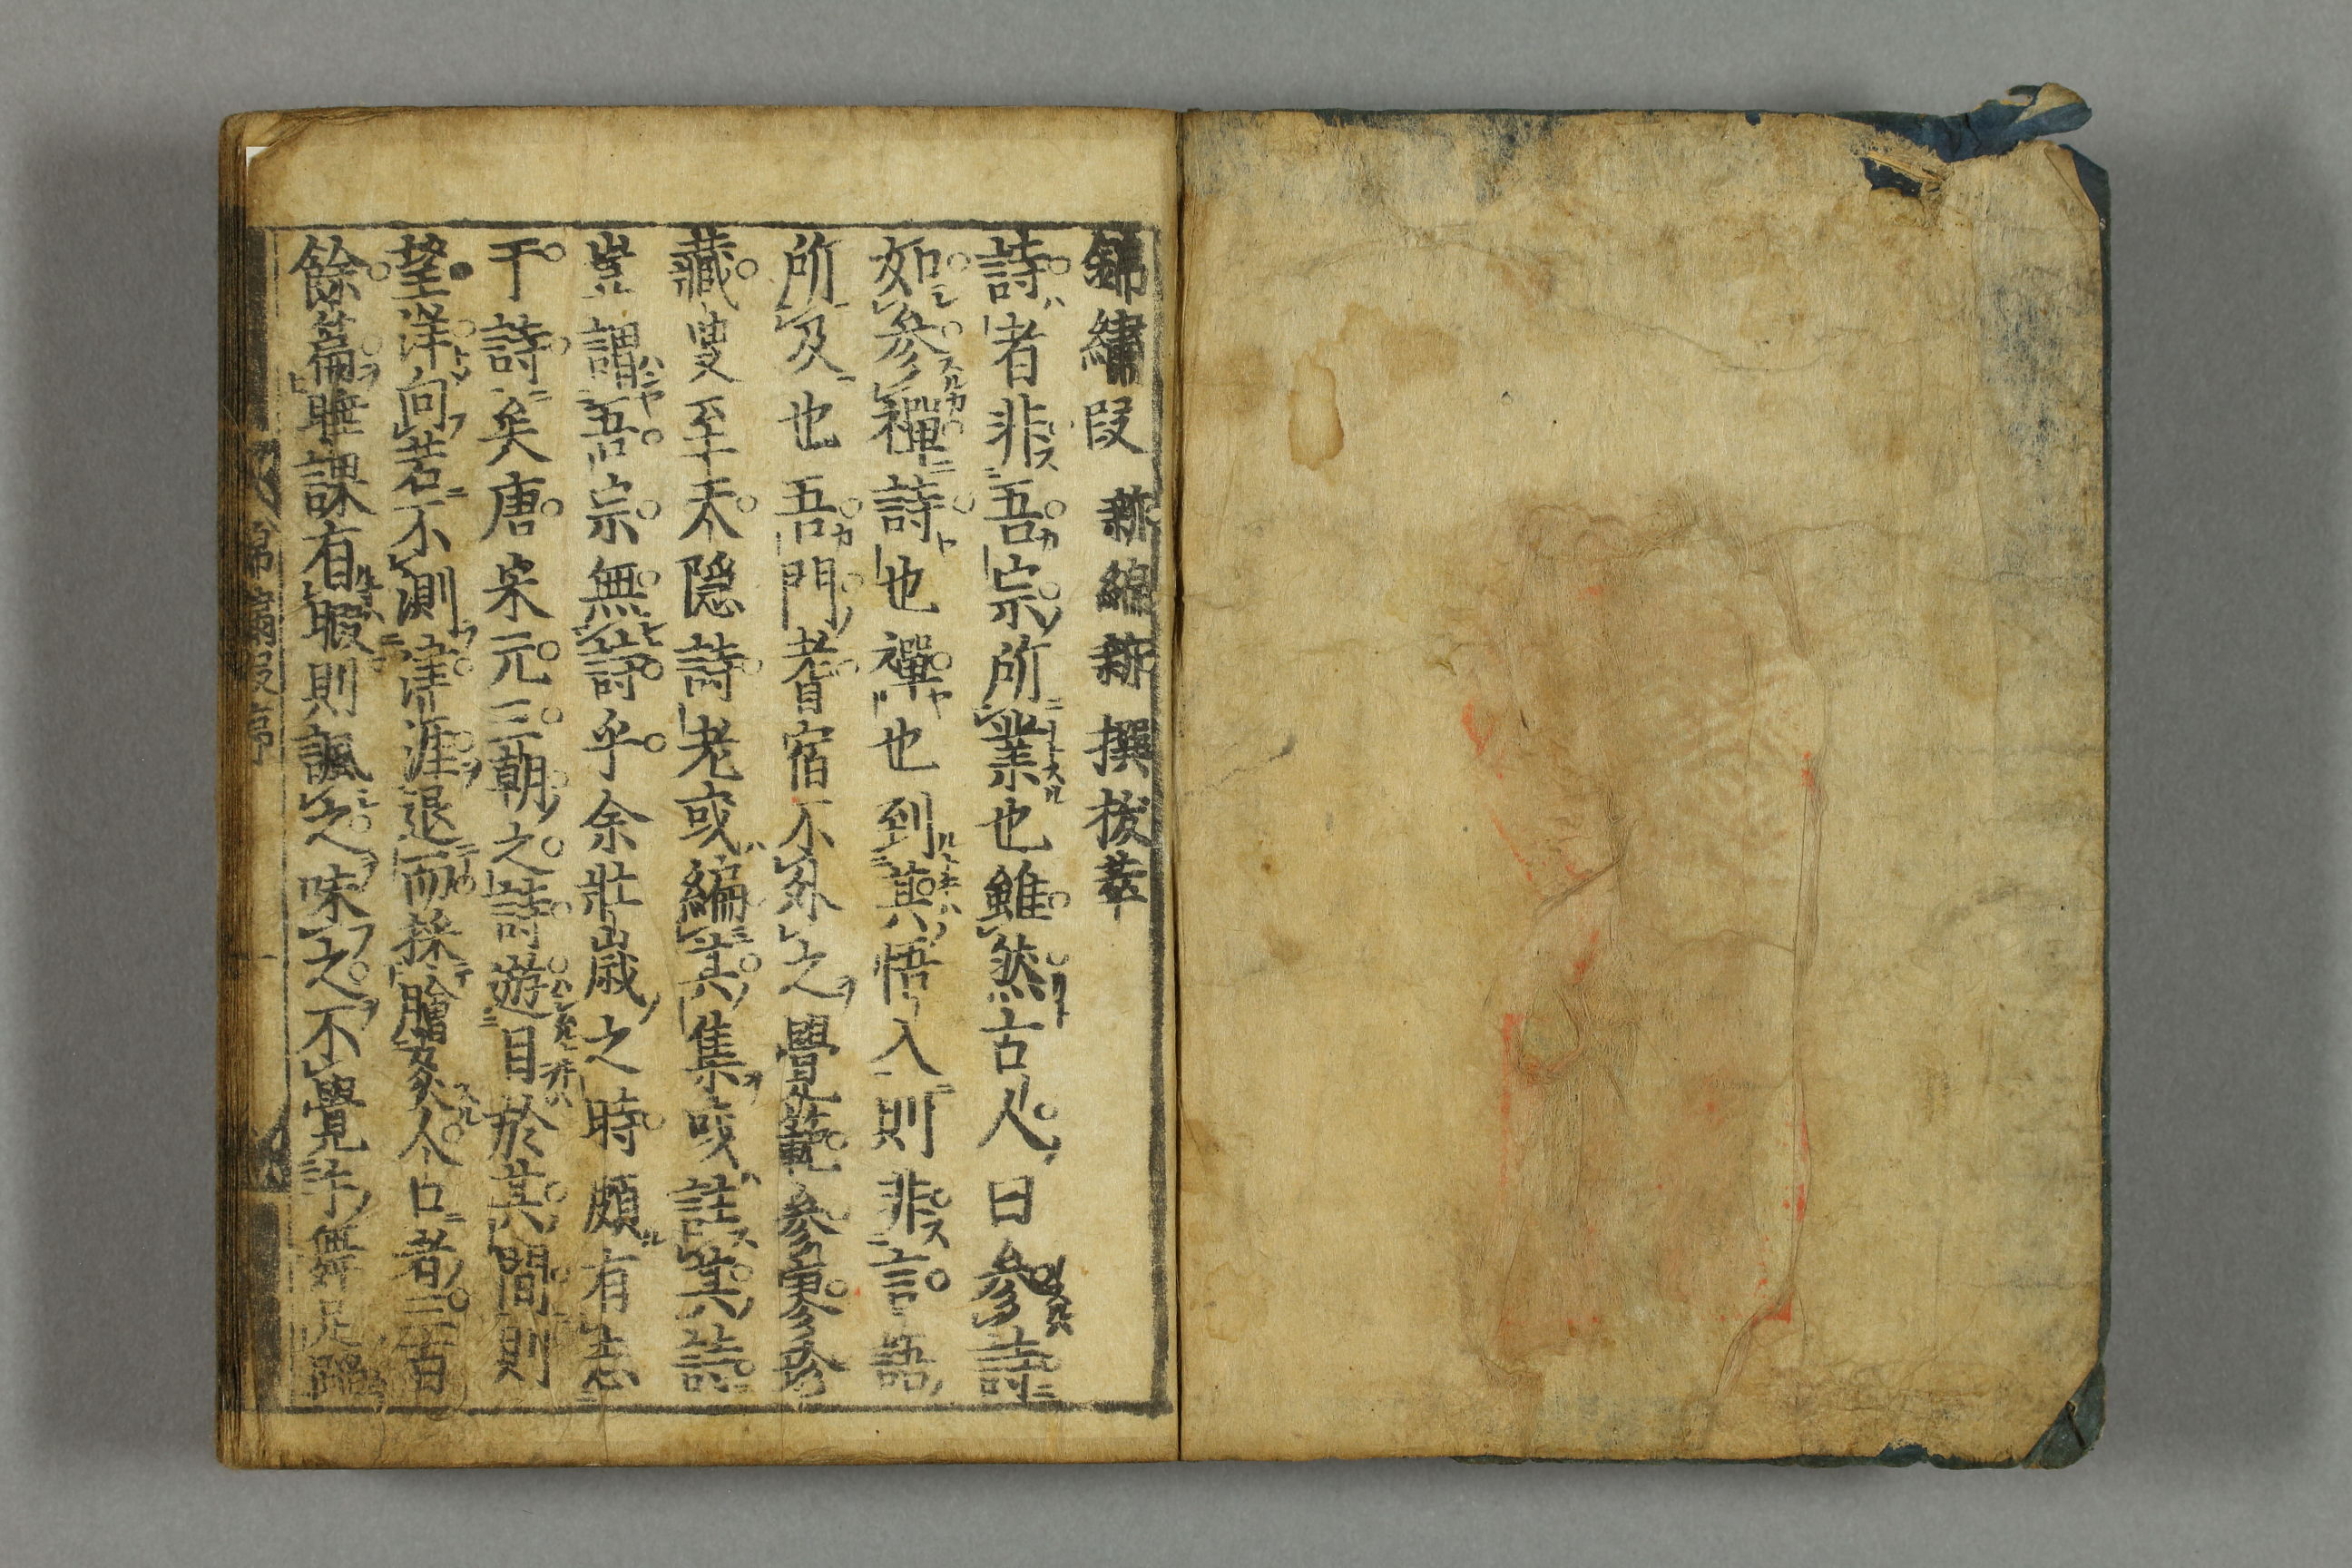 錦繡段 新編新撰拔萃
詩者非吾宗所業也雖然古人曰參詩
如參禪詩也禪也到其悟入則非言語
所及也吾門耆宿不外之覺範參寥珍
藏叟至天隱詩老或編其集或註其詩
豈謂吾宗無詩乎余壯歲之時頗有志
于詩矣唐宋元三朝之詩遊目於其間則
望洋向若不測津涯退而採膾炙人口者三百
餘篇雖課有暇則諷之味之不覺手舞足蹈
錦繡段序